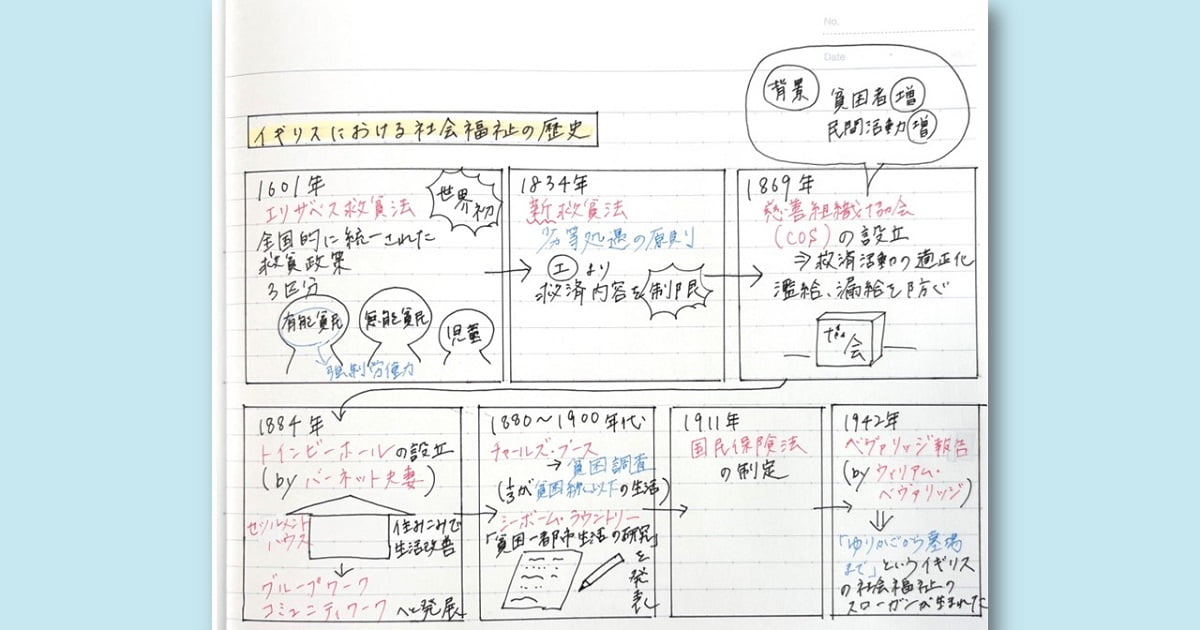 No.
Date
背景 貧困者増
民間活動増
イギリスにおける社会福祉の歴史
1601年
エリザベス救貧法
世界初
全国的に統一された
救貧政策
3区分
有能貧民
無能貧民
児童
強制労働力
1834年
新救貧法
劣等処遇の原則
エより
救済内容を制限
1869年
慈善組織協会
(COS)の設立
⇒救済活動の適正化
濫給、漏給を防ぐ
会
1884年
トインビーホールの設立
(by バーネット夫妻)
セツルメント
ハウス
住みこみで
生活改善
グループワーク
コミュニティワークへと発展
1880〜1900年代
チャールズ・ブース
→貧困調査
(1/3が貧困線以下の生活)
シーボーム・ラウントリー
「貧困-都市生活の研究」
を発表
1911年
国民保険法
の制定
1942年
ベヴァリッジ報告
(by ウィリアム・
ベヴァリッジ)
「ゆりかごから墓場
まで」というイギリス
の社会福祉の
スローガンが生まれた